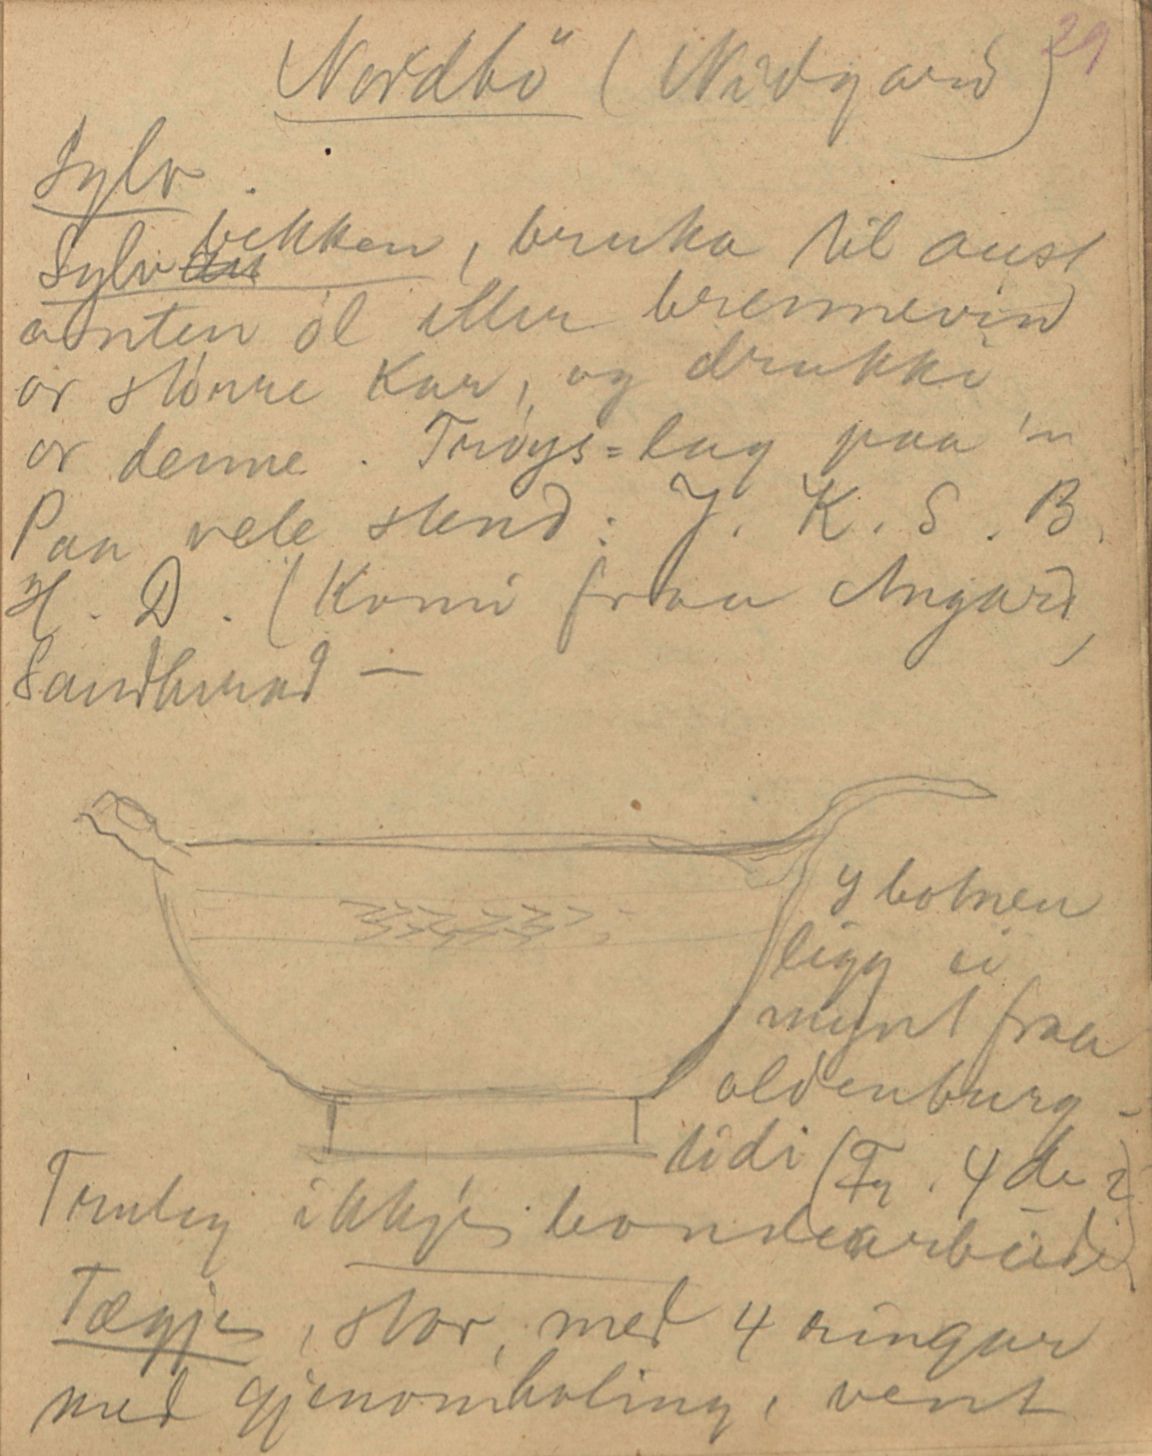 29
Nordbö (Nidgard)
Sylv.
Sylvbekken, bruka til aust
anten öl eller brennevin
or störrre Kar, og drukki
or denne. Tröys=lag paa 'n
Paa vele stend: J. K. S. B.
H. D. (Komi fraa Angard,
Sandland —
Y botnen
ligg ei
mynt fraa
oldenburg-
tidi (Fr. 4de?)
Truleg ikkje bondearbeide
Tægje, stor, med 4 ringar
med gjenomholing, vent